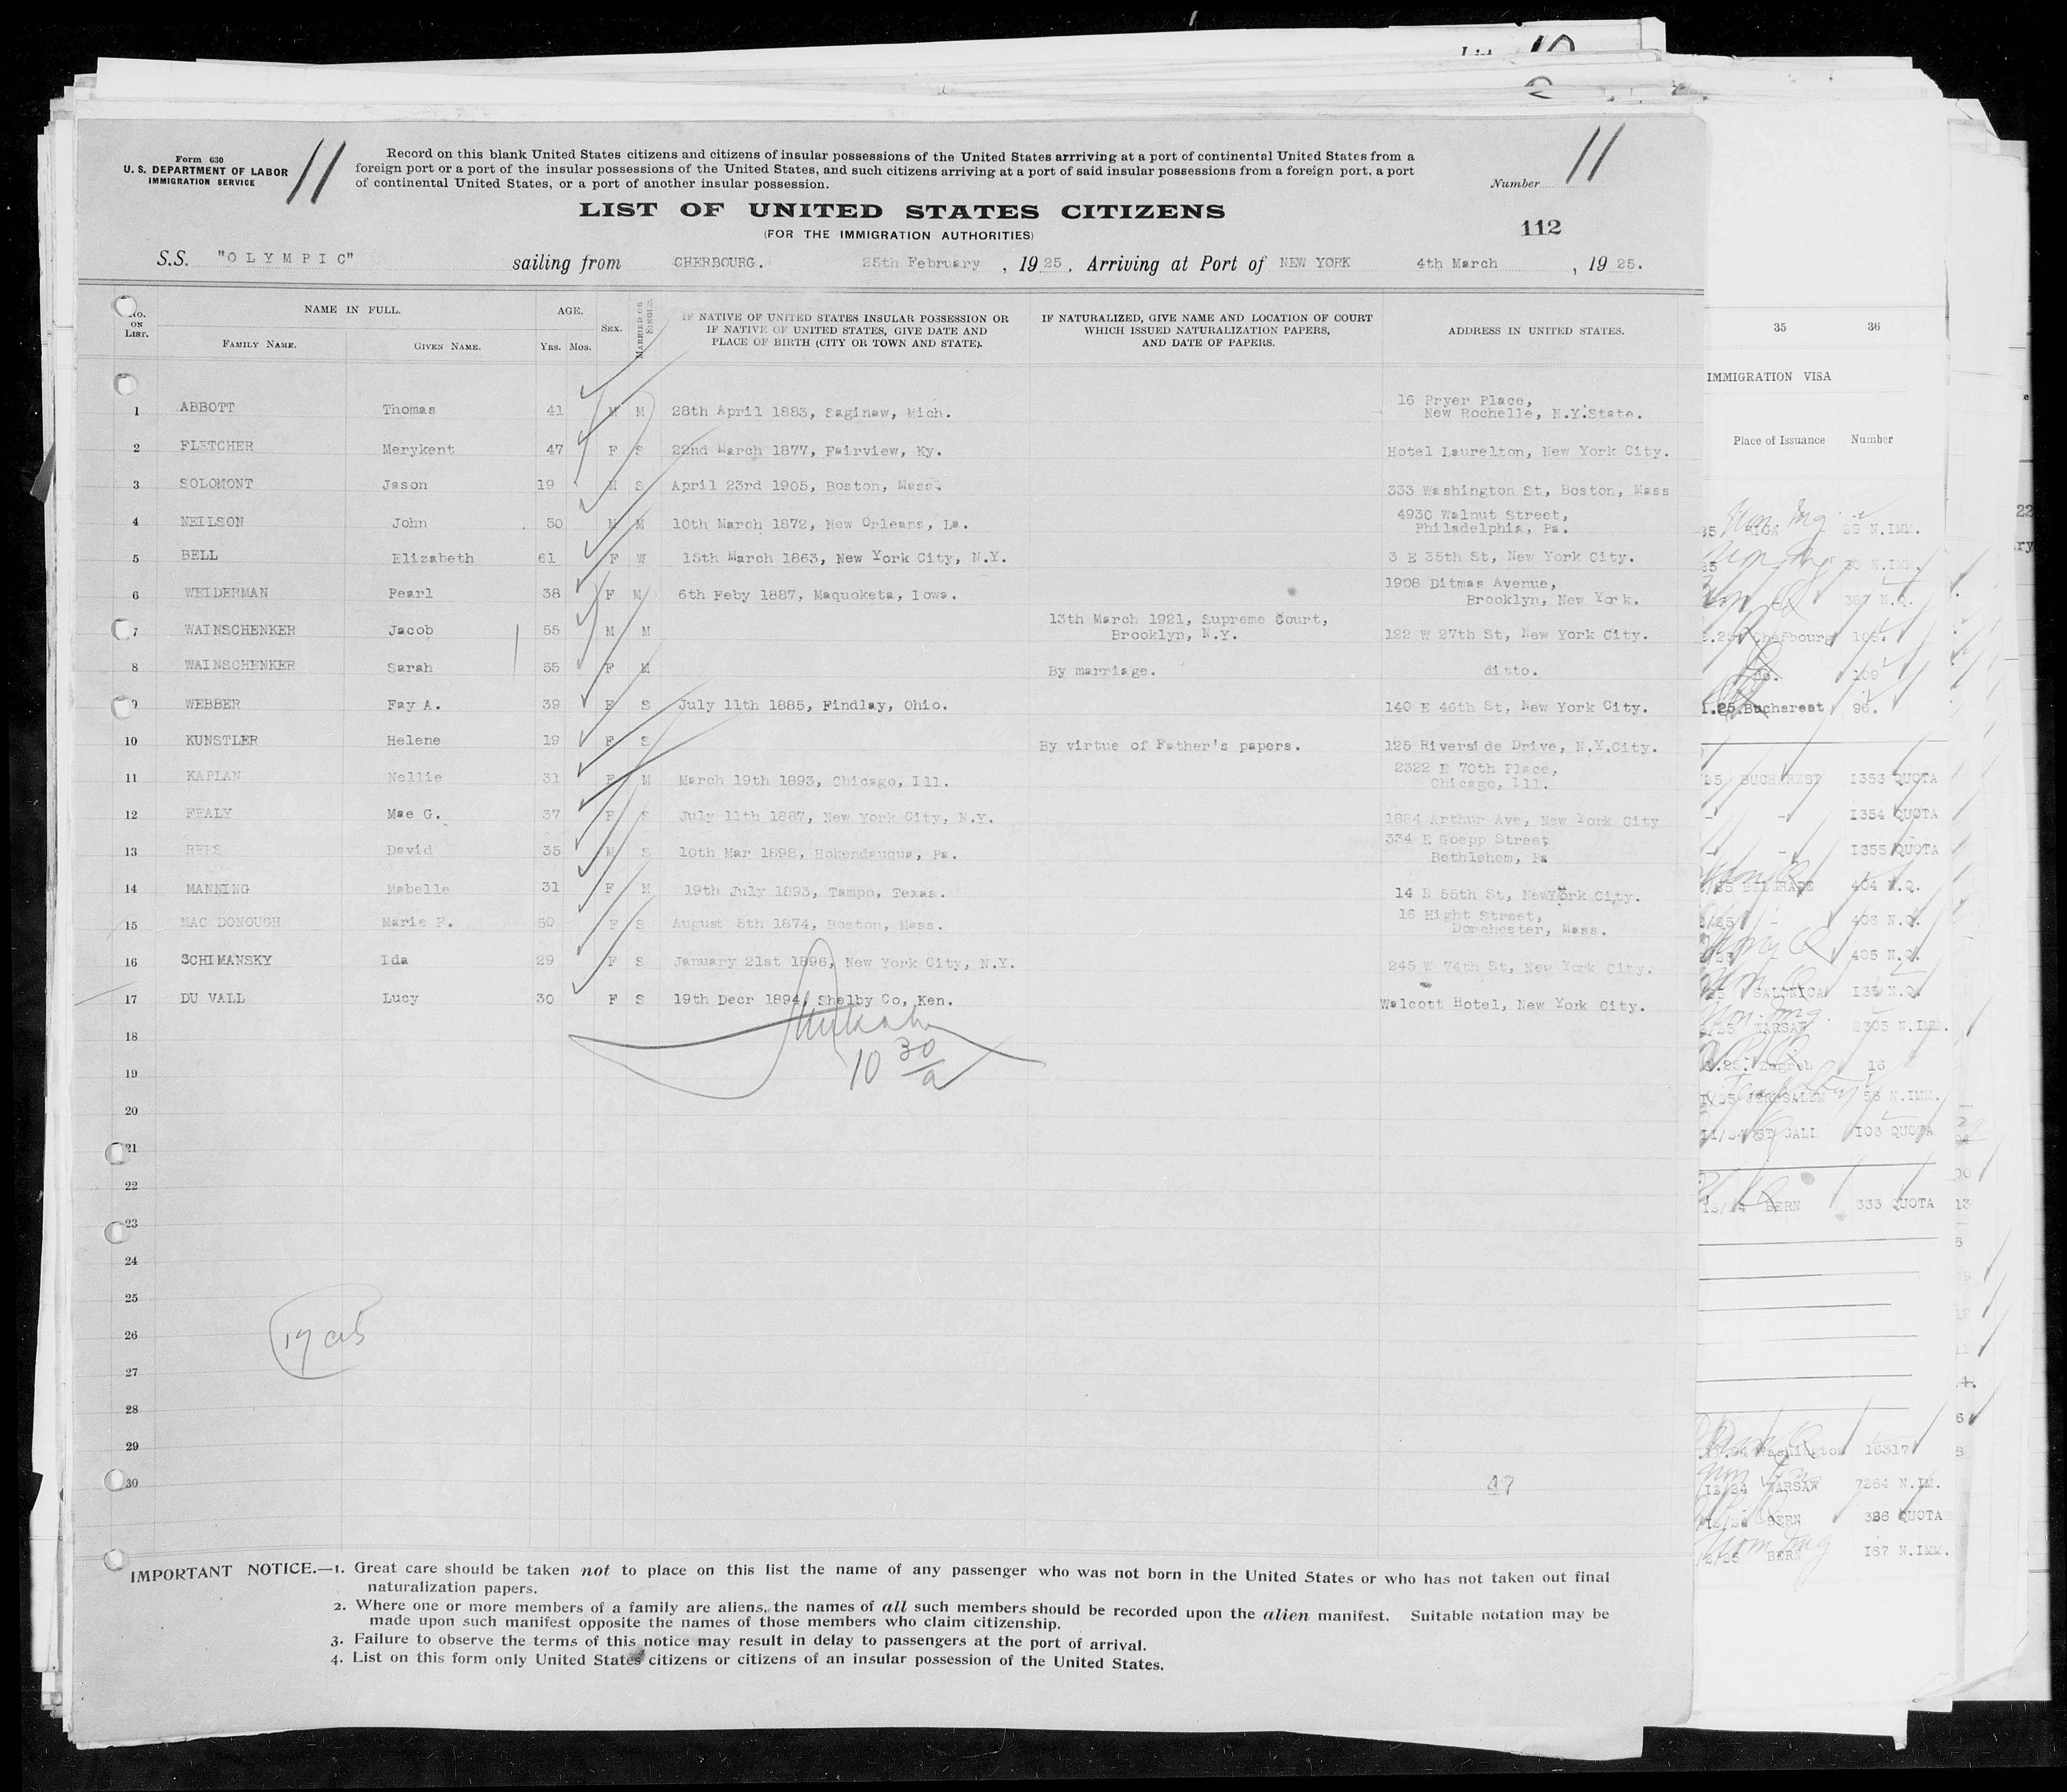 Form 630
U. S. DEPARTMENT OF LABOR
IMMIGRATION SERVICE
11
Record on this blank United States citizens and citizens of insular possessions of the United States arrriving at a port of continental United States from a
foreign port or a port of the insular possessions of the United States, and such citizens arriving at a port of said insular possessions from a foreign port, a port
of continental United States, or a port of another insular possession.
Number 11
LIST OF UNITED STATES CITIZENS
(FOR THE IMMIGRATION AUTHORITIES)
112
S.S. "OLYMPIC" sailing from CHERBOURG. 25th February, 1925, Arriving at Port of NEW YORK 4th March, 1925.
No. ON LIST. NAME IN FULL. FAMILY NAME. GIVEN NAME. AGE. YRS. MOS. SEX. MARRIED OR SINGLE. IF NATIVE OF UNITED STATES INSULAR POSSESSION OR IF NATIVE OF UNITED STATES, GIVE DATE AND PLACE OF BIRTH (CITY OR TOWN AND STATE). IF NATURALIZED, GIVE NAME AND LOCATION OF COURT WHICH ISSUED NATURALIZATION PAPERS, AND DATE OF PAPERS. ADDRESS IN UNITED STATES.
1 ABBOTT Thomas 41 M M 28th April 1883, Saginaw, Mich. 16 Pryer Place, New Rochelle, N.Y.State.
2 FLETCHER Merykent 47 F S 22nd March 1877, Fairview, Ky. Hotel Laurelton, New York City.
3 SOLOMONT Jason 19 M S April 23rd 1905, Boston, Mass. 333 Washington St, Boston, Mass
4 NEILSON John 50 M M 10th March 1872, New Orleans, La. 4930 Walnut Street, Philadelphia, Pa.
5 BELL Elizabeth 61 F W 15th March 1863, New York City, N.Y. 3 E 35th St, New York City.
6 WEIDERMAN Pearl 38 F M 6th Feby 1887, Maquoketa, Iowa. 1908 Ditmas Avenue, Brooklyn, New York.
7 WAINSCHENKER Jacob 55 M M 13th March 1921, Supreme Court, Brooklyn, N.Y. 122 W 27th St, New York City.
8 WAINSCHENKER Sarah 55 F M By marriage. ditto.
9 WEBBER Fay A. 39 F S July 11th 1885, Findlay, Ohio. 140 E 46th St, New York City.
10 KUNSTLER Helene 19 F S By virtue of Father's papers. 125 Riverside Drive, N.Y.City.
11 KAPLAN Nellie 31 F M March 19th 1893, Chicago, Ill. 2322 E 70th Place, Chicago, Ill.
12 FEALY Mae G. 37 F S July 11th 1887, New York City, N.Y. 1884 Arthur Ave, New York City
13 REES David 35 M S 10th Mar 1898, Hokendauqua, Pa. 334 E Goepp Street Bethlehem, Pa
14 MANNING Mabelle 31 F M 19th July 1893, Tampo, Texas. 14 E 55th St, NewYork City.
15 MAC DONOUGH Marie F. 50 F S August 5th 1874, Boston, Mass. 16 Hight Street, Dorchester, Mass.
16 SCHIMANSKY Ida 29 F S January 21st 1896, New York City, N.Y. 245 W 74th St, New York City.
17 DU VALL Lucy 30 F S 19th Decr 1894, Shelby Co, Ken. Walcott Hotel, New York City.
18
19
10 30/a
20
21
22
23
24
25
26
27
28
29
30
47
IMPORTANT NOTICE.—1. Great care should be taken not to place on this list the name of any passenger who was not born in the United States or who has not taken out final
naturalization papers.
2. Where one or more members of a family are aliens, the names of all such members should be recorded upon the alien manifest. Suitable notation may be
made upon such manifest opposite the names of those members who claim citizenship.
3. Failure to observe the terms of this notice may result in delay to passengers at the port of arrival.
4. List on this form only United States citizens or citizens of an insular possession of the United States.
35 36
IMMIGRATION VISA
Place of Issuance Number
RIGA N.IMM.
30 N.IMM.
Cherbourg
do.
Bucharest 96.
BUCHAREST 1353 QUOTA
1354 QUOTA
1355 QUOTA
BELGRADE 404 N.Q.
406 N.Q.
405 N.Q.
SALONICA N.Q.
WARSAW N.IMM.
Zagreb 16
JERUSALEM 56 N.IMM.
ST GALL 103 QUOTA
BERN 333 QUOTA
Washington
WARSAW N.IM.
BERN QUOTA
BERN 167 N.IMM.